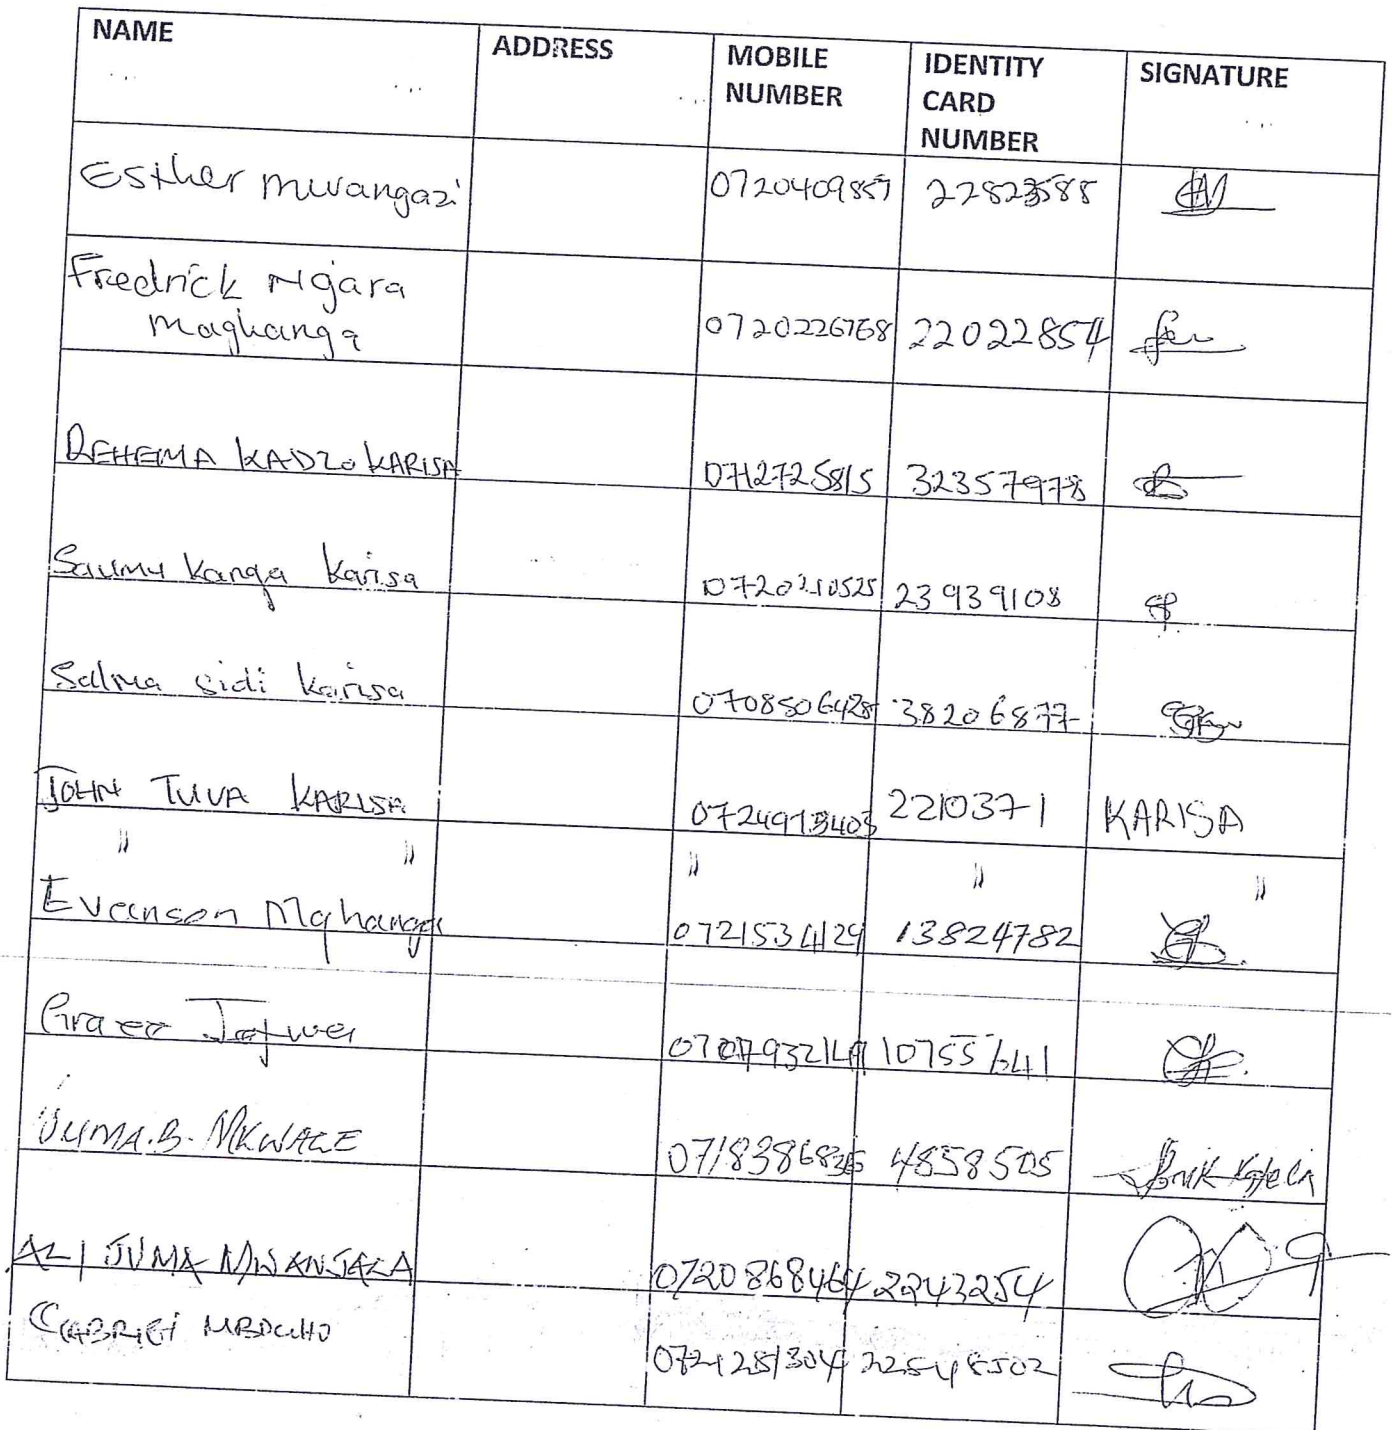 NAME ADDRESS MOBILE NUMBER IDENTITY CARD NUMBER SIGNATURE
Esther Mwangazi 0720409857 22823588
Fredrick Ngara
Maghanga 0720226768 22022854
REHEMA KADZO KARISA 0712725815 32357978
Saumu Kanga Karisa 0720210525 23939108
Salma Sidi Karisa 0708506428 38206877
JOHN TUVA KARISA 2210371 KARISA
" " " " "
Evanson Mghanga 0721534129 13824782
Grace 10755641
JUMA.B. MKWALE 4858505
ALI JUMA MWANJALA 0720868464 2243254
0721281304 22548502